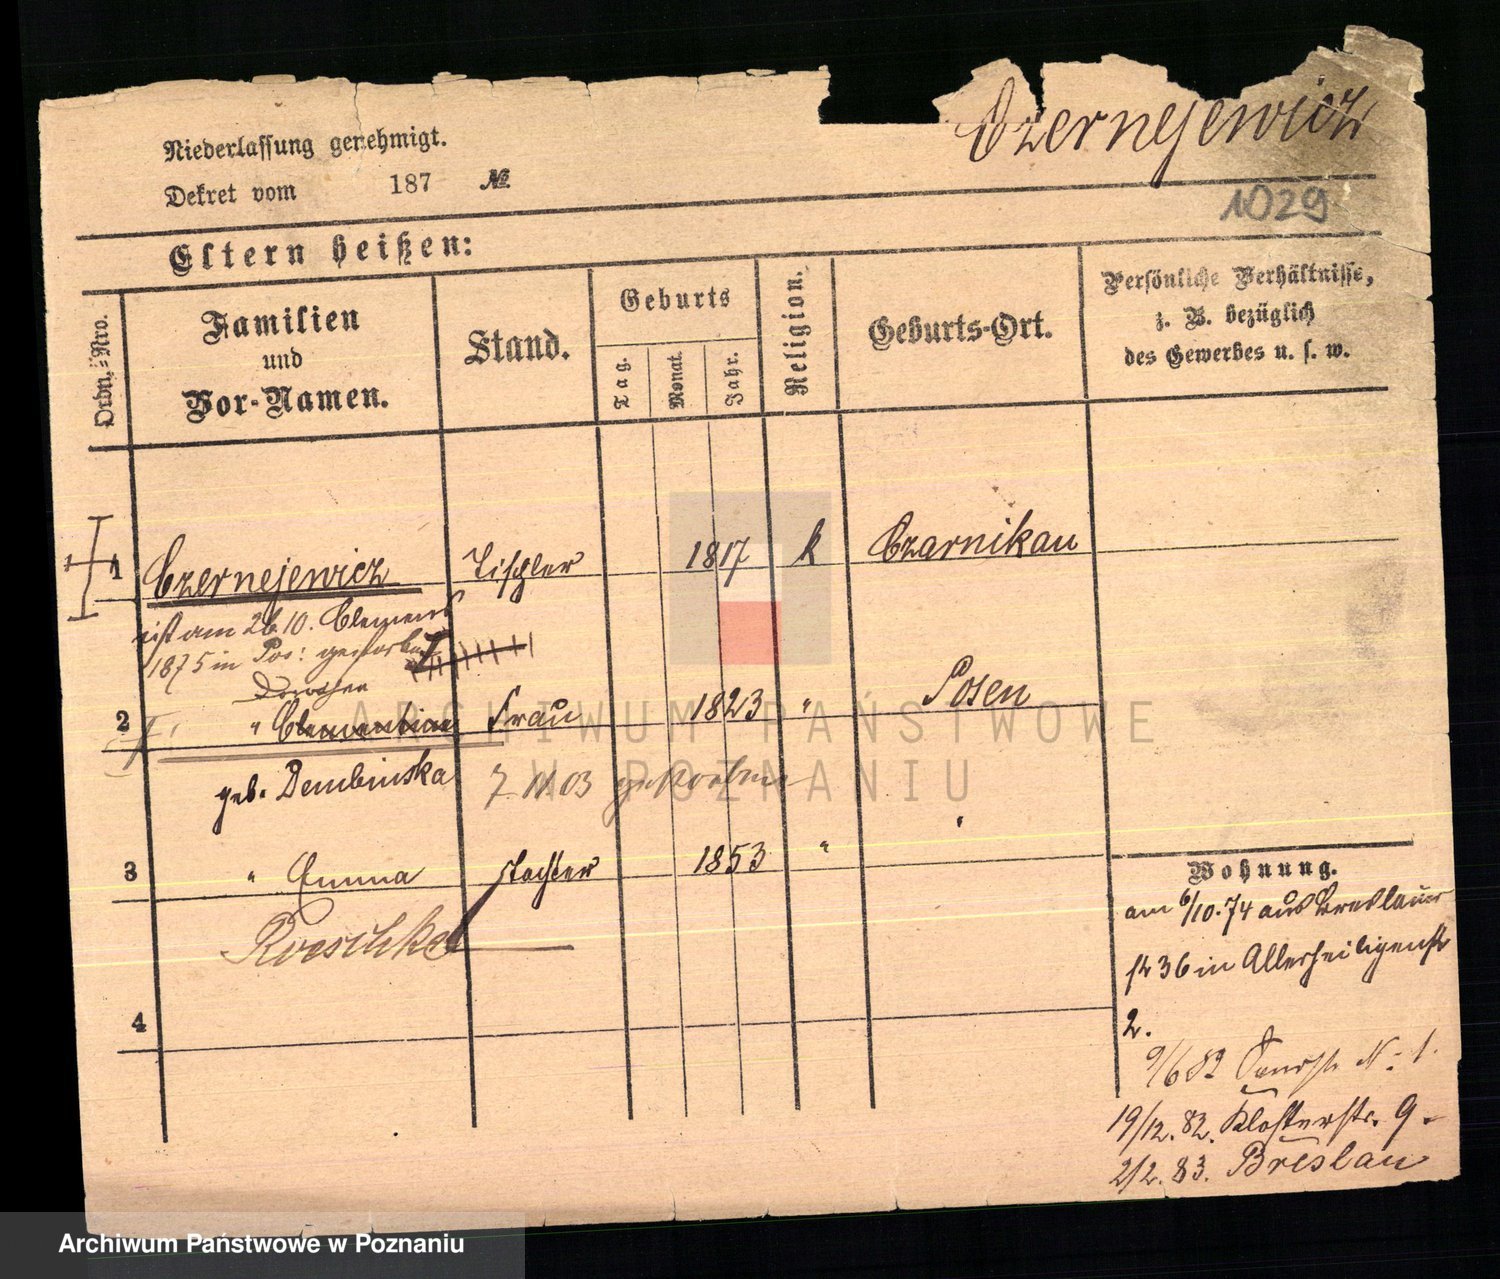 Niederlassung genehmigt.
Dekret vom 187 №
Czernejewicz
1029
Eltern heißen:
Ordn.-Nro.
Familien
und
Vor-Namen.
Stand.
Geburts
Tag.
Monat.
Jahr.
Religion.
Geburts-Ort.
Persönliche Verhältnisse,
z. B. bezüglich
des Gewerbes u. s. w.
1 Czernejewicz Tischler 1817 k Czarnikau
ist am 26 10. Clemens
1875 in Pos: gestorben
2 " Clementine Frau 1823 " Posen
geb. Dembinska 7. 11. 03 gestorben
3 " Emma Tochter 1853 "
Roeschke
4
Wohnung.
am 6/10. 74 aus Breslauer
str 36 in Allerheiligenstr
2.
9/6 82 N: 1.
19/12. 82. Klosterstr. 9.
2/2. 83. Breslau
ARCHIWUM PAŃSTWOWE
W POZNANIU
Archiwum Państwowe w Poznaniu